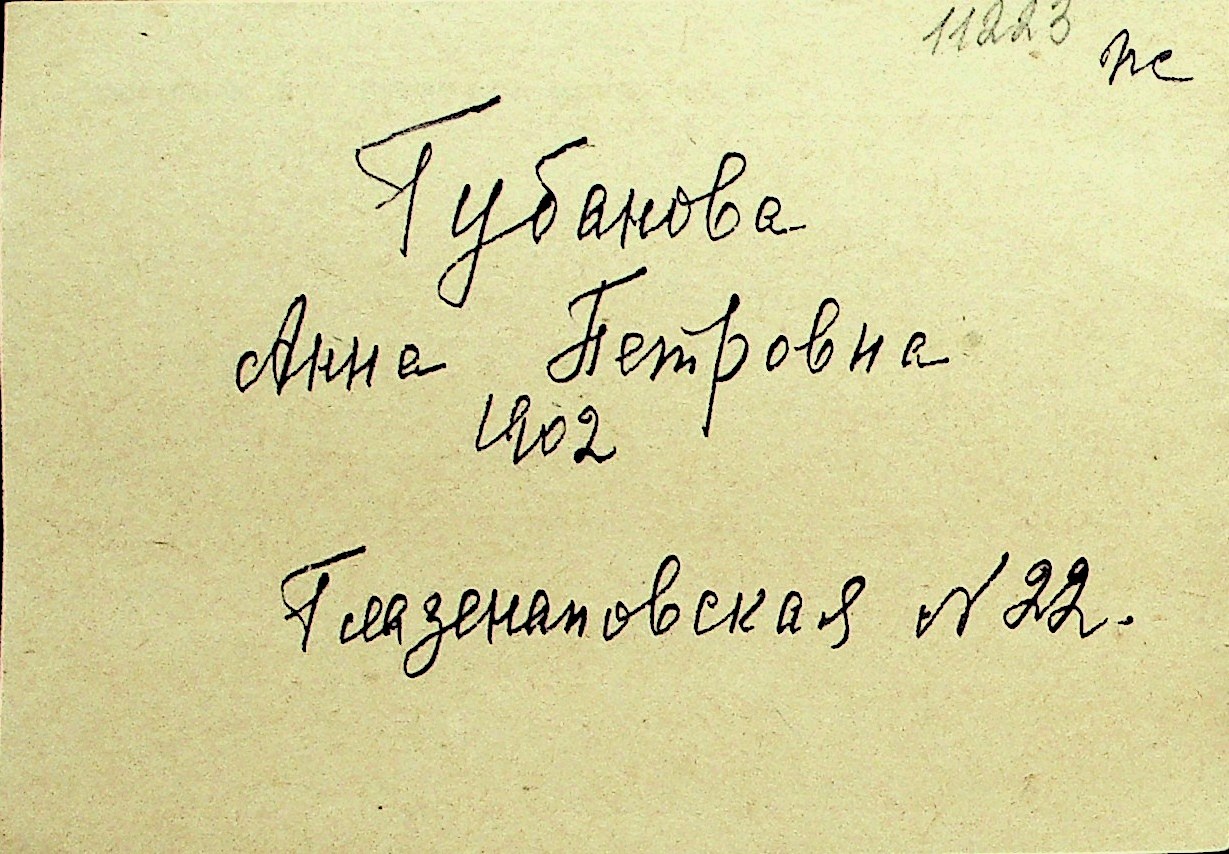 11223
Губанова
Анна Петровна
1902
Глазенаповская N 22.